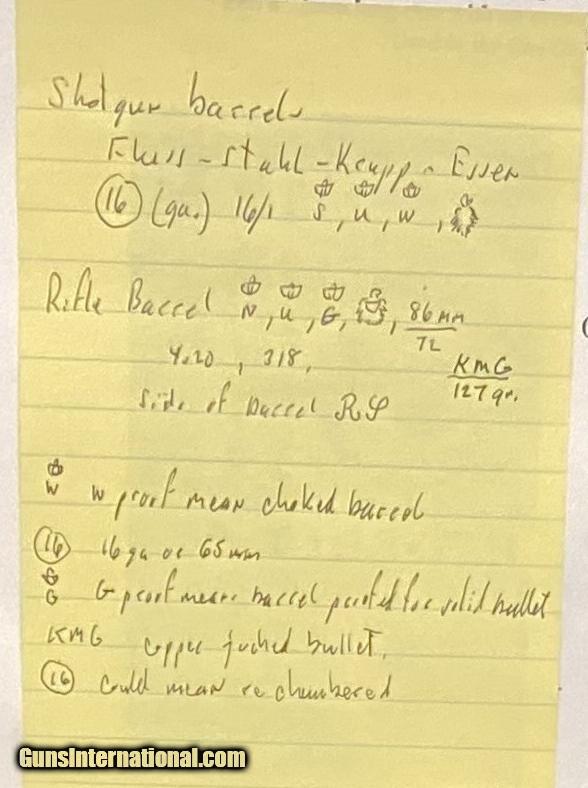 Shotgun barrels
Fluss-Stahl-Krupp-Essen
16 (ga.) 16/1 S, U, W,
Rifle Barrel N, U, G, , 86mm
72
4.20, 318,
KMG
127 gr.
side of barrel
W W proof mean choked barrel
16 16 ga or 65mm
G G proof means barrel proofed for solid bullet
KMG copper jacked bullet.
16 Could mean rechambered
GunsInternational.com